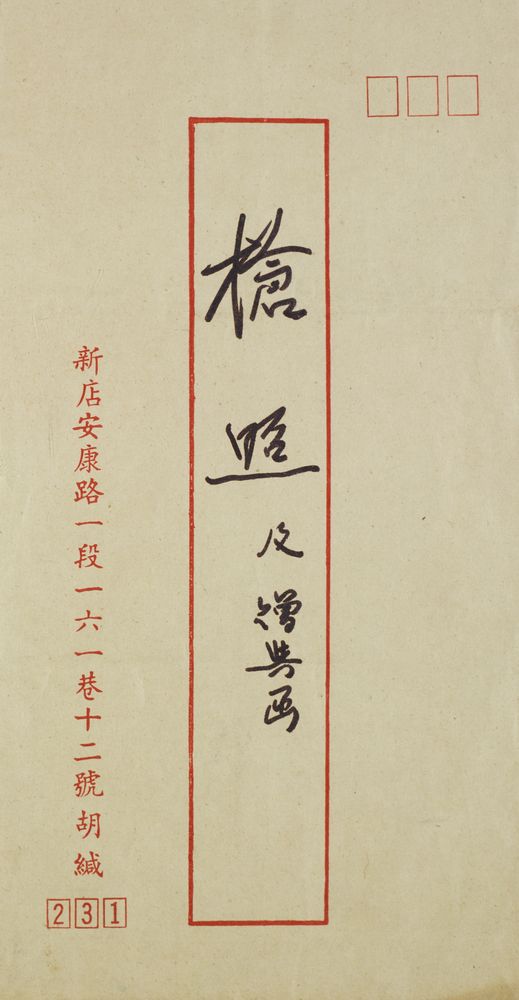 槍照及贈與函
新店安康路一段一六一巷十二號胡緘
231